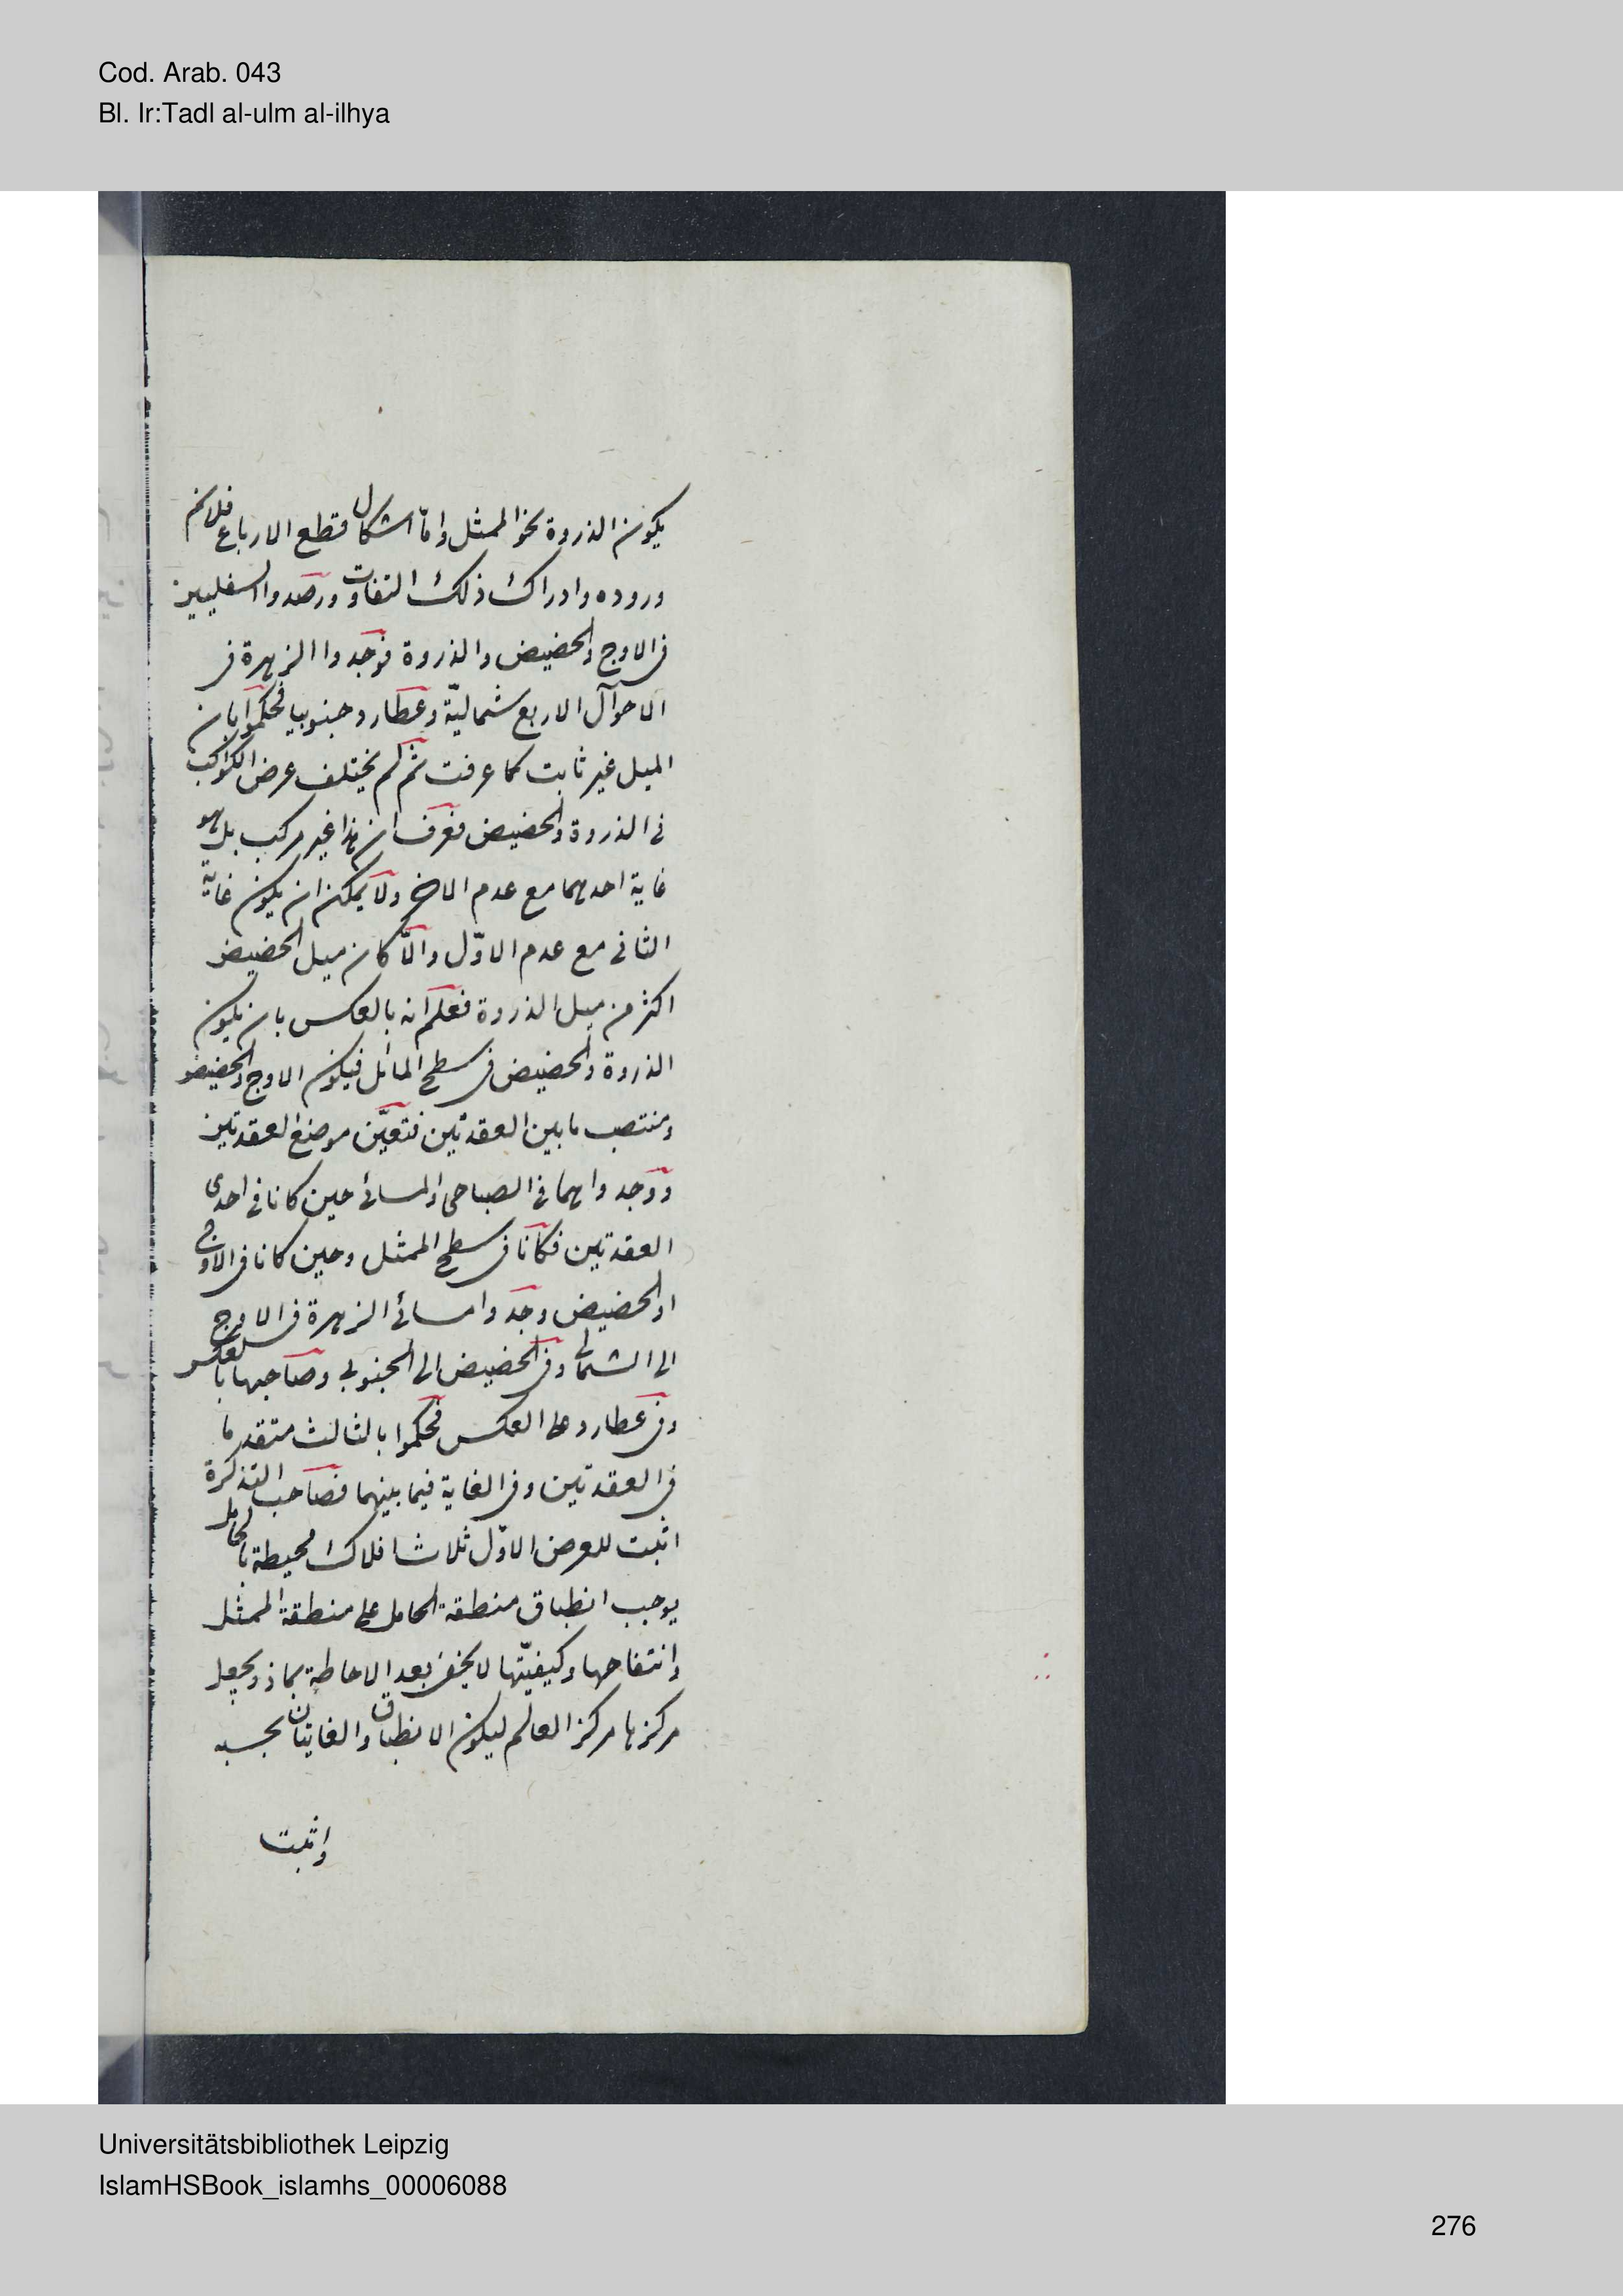 Cod. Arab. 043
Bl. Ir:Tadl al-ulm al-ilhya
يكون الذروة نحو الممثل وامّا اشكال قطع الارباع فلانم
وروده وادراك ذلك التفاوت ورصدوا السفليين
فى الاوج والحضيض والذروة فوجدوا الزهرة فى
الاحوال الاربع شماليّة وعطارد جنوبيا فحكموا بان
الميل غير ثابت كما عرفت ثم لم يختلف عرض الكواكب
فى الذروة والحضيض فعرف ان هذا غير مركب بل هو
غاية احدهما مع عدم الاخ ولا يمكن ان يكون غاية
الثانى مع عدم الاوّل والّا كان ميل الحضيض
اكثر من ميل الذروة فعلم انه بالعكس بان يكون
الذروة والحضيض فى سطح المائل فيكون الاوج والحضيض
ومنتصب ما بين العقدتين فتعيّن موضع العقدتين
ووجدوا هما فى الصباحى والمسائى حين كانا فى احدى
العقدتين فكانا فى سطح الممثل وحين كانا فى الاوج
او الحضيض وجدوا مسائى الزهرة فى الاوج
الى الشمالى وفى الحضيض الى الجنوبى وصاحبها بالعكس
وفى عطارد على العكس فحكموا بالثالث متقدما
فى العقدتين وفى الغاية فيما بينهما فصاحب التذكرة
اثبت للعرض الاوّل ثلاثا فلاك محيطة بالحامل
يوجب انطباق منطقة الحامل على منطقة الممثل
وانتفاحها وكيفيّتها لا يخفى بعد الاحاطة بما ذ ويجعل
مركزها مركز العالم ليكون الانطباق والغايتان بحسبه
واثبت
Universitätsbibliothek Leipzig
IslamHSBook_islamhs_00006088
276